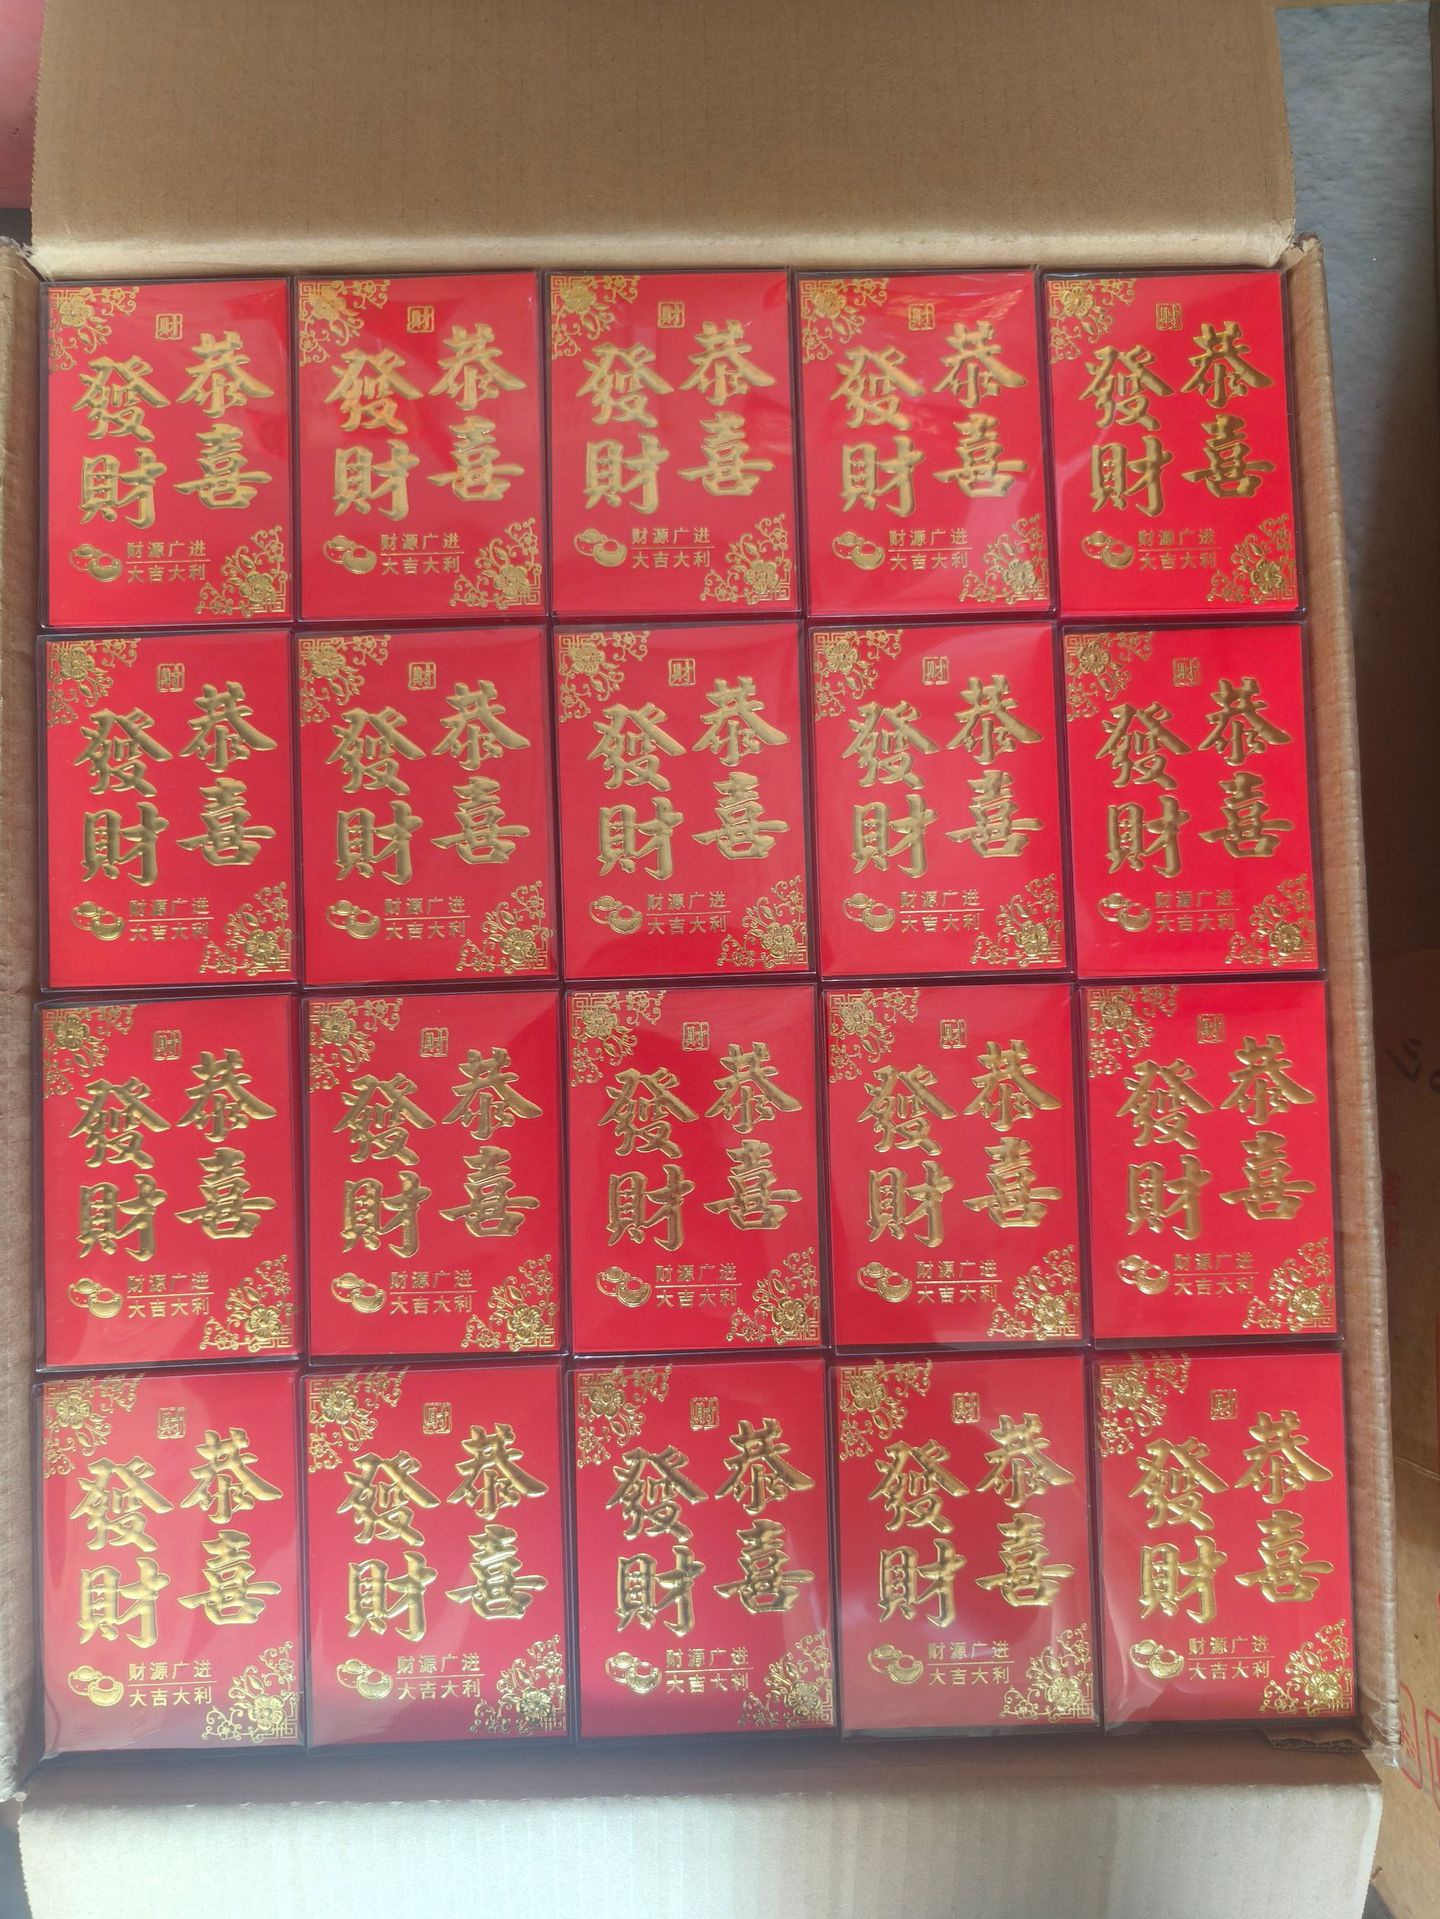 财
恭喜
發財
财源广进
大吉大利
财
恭喜
發財
财源广进
大吉大利
财
恭喜
發財
财源广进
大吉大利
财
恭喜
發財
财源广进
大吉大利
财
恭喜
發財
财源广进
大吉大利
财
恭喜
發財
财源广进
大吉大利
财
恭喜
發財
财源广进
大吉大利
财
恭喜
發財
财源广进
大吉大利
财
恭喜
發財
财源广进
大吉大利
财
恭喜
發財
财源广进
大吉大利
财
恭喜
發財
财源广进
大吉大利
财
恭喜
發財
财源广进
大吉大利
财
恭喜
發財
财源广进
大吉大利
财
恭喜
發財
财源广进
大吉大利
财
恭喜
發財
财源广进
大吉大利
财
恭喜
發財
财源广进
大吉大利
财
恭喜
發財
财源广进
大吉大利
财
恭喜
發財
财源广进
大吉大利
财
恭喜
發財
财源广进
大吉大利
财
恭喜
發財
财源广进
大吉大利